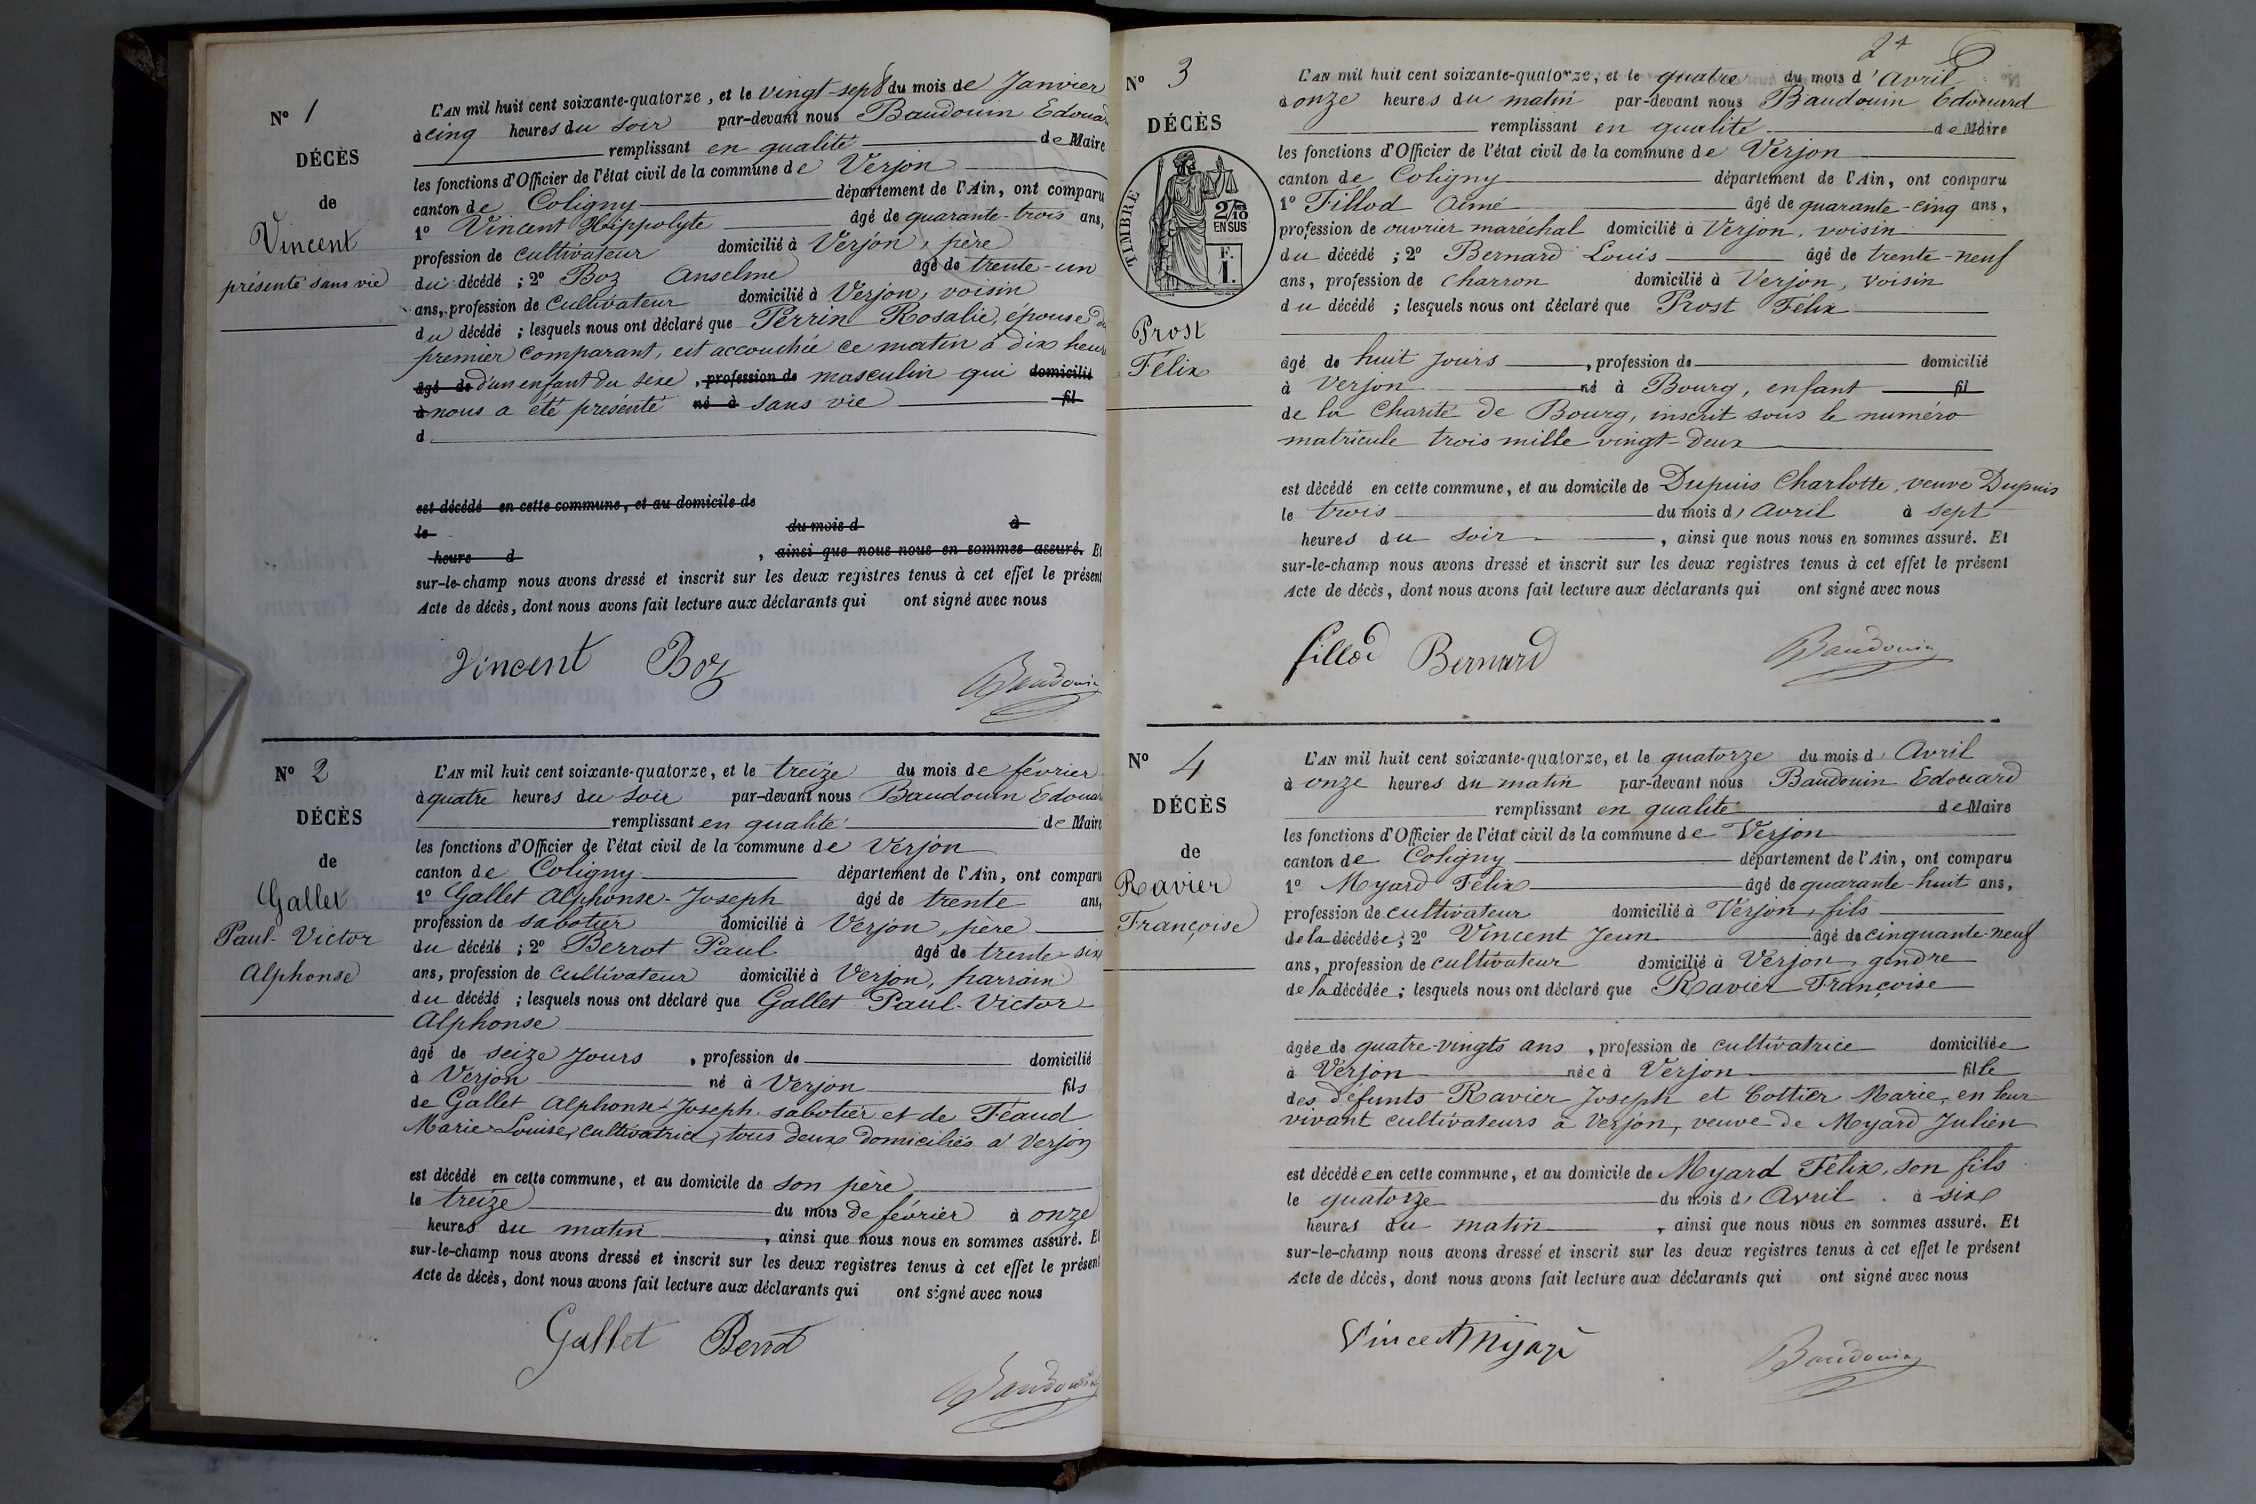 N° 1
DÉCÈS
de
Vincent
présenté sans vie
L'AN mil huit cent soixante-quatorze, et le vingt-sept du mois de Janvier
à cinq heures du soir par-devant nous Baudouin Edouard
remplissant en qualité de Maire
les fonctions d'Officier de l'état civil de la commune de Verjon
canton de Coligny département de l'Ain, ont comparu
1° Vincent Hippolyte âgé de quarante-trois ans,
profession de cultivateur domicilié à Verjon, père
du décédé ; 2° Boz Anselme âgé de trente-un
ans, profession de cultivateur domicilié à Verjon, voisin
du décédé ; lesquels nous ont déclaré que Perrin Rosalie, épouse du
premier comparant, est accouchée ce matin à dix heures
âgé de d'un enfant du sexe , profession de masculin qui domicilié
à nous a été présenté né à sans vie fil
d
est décédé en cette commune, et au domicile de
le du mois d à
heure d , ainsi que nous nous en sommes assuré. Et
sur-le-champ nous avons dressé et inscrit sur les deux registres tenus à cet effet le présent
Acte de décès, dont nous avons fait lecture aux déclarants qui ont signé avec nous
Vincent Boz
Baudouin
N° 2
DÉCÈS
de
Gallet
Paul-Victor
Alphonse
L'AN mil huit cent soixante-quatorze, et le treize du mois de février
à quatre heures du soir par-devant nous Baudouin Edouard
remplissant en qualité de Maire
les fonctions d'Officier de l'état civil de la commune de Verjon
canton de Coligny département de l'Ain, ont comparu
1° Gallet Alphonse-Joseph âgé de trente ans,
profession de sabotier domicilié à Verjon, père
du décédé ; 2° Berrot Paul âgé de trente-six
ans, profession de cultivateur domicilié à Verjon, parrain
du décédé ; lesquels nous ont déclaré que Gallet Paul-Victor
Alphonse
âgé de seize jours , profession de domicilié
à Verjon né à Verjon fils
de Gallet Alphonse-Joseph sabotier et de Féaud
Marie-Louise, cultivatrice, tous deux domiciliés à Verjon
est décédé en cette commune, et au domicile de son père
le treize du mois de février à onze
heures du matin , ainsi que nous nous en sommes assuré. Et
sur-le-champ nous avons dressé et inscrit sur les deux registres tenus à cet effet le présent
Acte de décès, dont nous avons fait lecture aux déclarants qui ont signé avec nous
Gallet Berrot
Baudouin
2
N° 3
DÉCÈS
TIMBRE
2/10
EN SUS
F.
1.
Prost
Félix
L'AN mil huit cent soixante-quatorze, et le quatre du mois d'Avril
à onze heures du matin par-devant nous Baudouin Edouard
remplissant en qualité de Maire
les fonctions d'Officier de l'état civil de la commune de Verjon
canton de Coligny département de l'Ain, ont comparu
1° Fillod Aimé âgé de quarante-cinq ans,
profession de ouvrier maréchal domicilié à Verjon, voisin
du décédé ; 2° Bernard Louis âgé de trente-neuf
ans, profession de charron domicilié à Verjon, voisin
du décédé ; lesquels nous ont déclaré que Prost Félix
âgé de huit jours , profession de domicilié
à Verjon né à Bourg, enfant fil
de la Charité de Bourg, inscrit sous le numéro
matricule trois mille vingt-deux
est décédé en cette commune, et au domicile de Dupuis Charlotte, veuve Dupuis
le trois du mois d'Avril à sept
heures du soir , ainsi que nous nous en sommes assuré. Et
sur-le-champ nous avons dressé et inscrit sur les deux registres tenus à cet effet le présent
Acte de décès, dont nous avons fait lecture aux déclarants qui ont signé avec nous
fillod Bernard
Baudouin
N° 4
DÉCÈS
de
Ravier
Françoise
L'AN mil huit cent soixante-quatorze, et le quatorze du mois d'Avril
à onze heures du matin par-devant nous Baudouin Edouard
remplissant en qualité de Maire
les fonctions d'Officier de l'état civil de la commune de Verjon
canton de Coligny département de l'Ain, ont comparu
1° Myard Félix âgé de quarante-huit ans,
profession de cultivateur domicilié à Verjon, fils
de la décédée ; 2° Vincent Jean âgé de cinquante-neuf
ans, profession de cultivateur domicilié à Verjon, gendre
de la décédée ; lesquels nous ont déclaré que Ravier Françoise
âgée de quatre-vingts ans , profession de cultivatrice domiciliée
à Verjon née à Verjon fille
des défunts Ravier Joseph et Cottier Marie, en leur
vivant cultivateurs à Verjon, veuve de Myard Julien
est décédée en cette commune, et au domicile de Myard Félix, son fils
le quatorze du mois d'Avril à six
heures du matin , ainsi que nous nous en sommes assuré. Et
sur-le-champ nous avons dressé et inscrit sur les deux registres tenus à cet effet le présent
Acte de décès, dont nous avons fait lecture aux déclarants qui ont signé avec nous
Vincent Myard
Baudouin